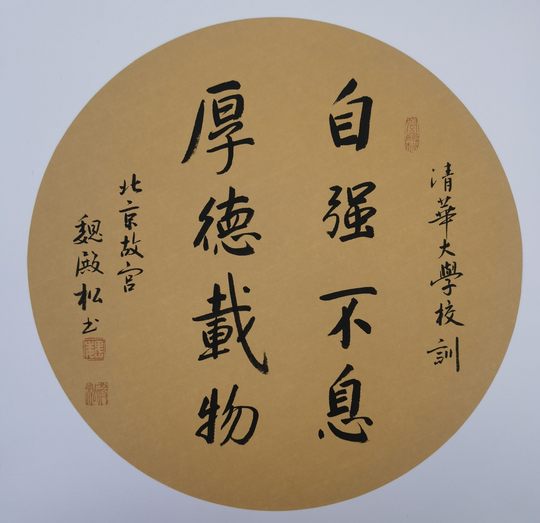 清華大學校訓
自强不息
厚德載物
北京故宫
魏殿松书